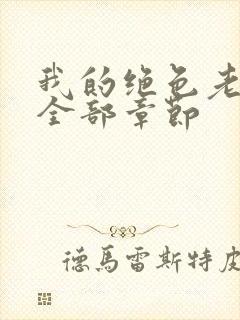 我的绝色老
全部章节
德馬雷斯特皮